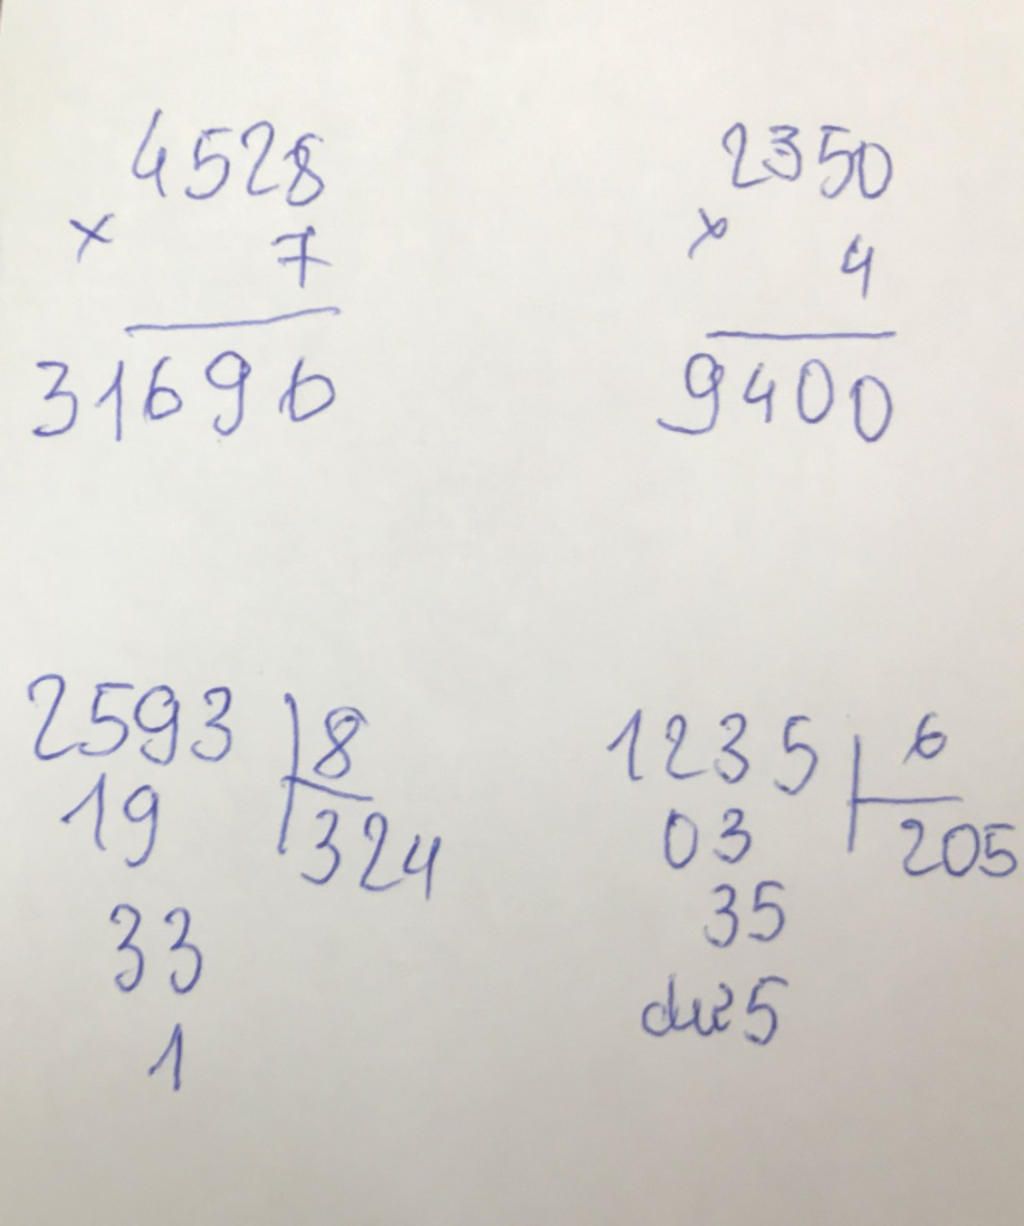 4528
× 7
31696
2350
× 4
9400
2593 8
19 324
33
1
1235 6
03 205
35
dư 5